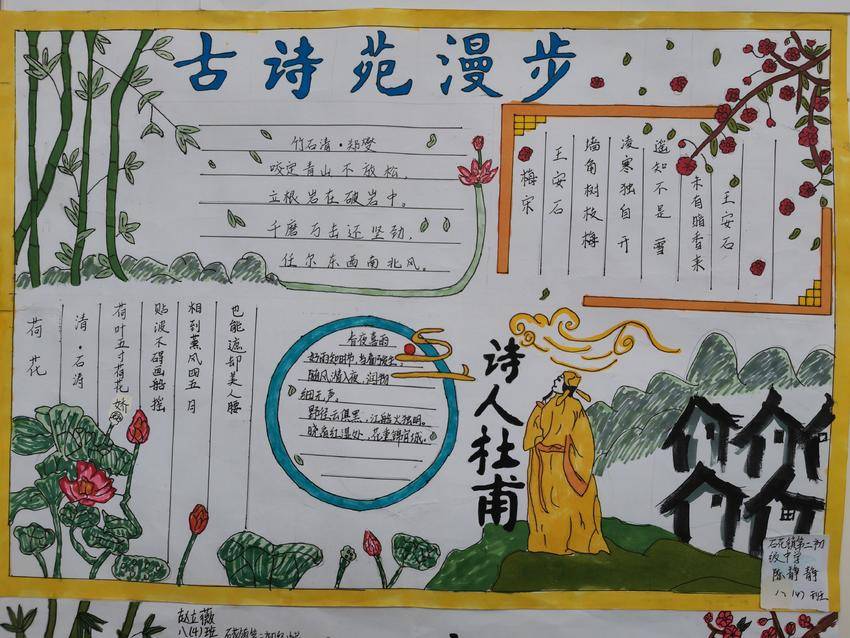 古诗苑漫步
竹石清·郑燮
咬定青山不放松,
立根岩在破岩中。
千磨万击还坚劲,
任尔东西南北风。
梅宋
王安石
墙角树枝梅
凌寒独自开
遥知不是雪
未自暗香来
王安石
荷花
清·石涛
荷叶五寸荷花娇
贴波不碍画船摇
相到薰风四五日
也能遮却美人腰
春夜喜雨
好雨知时节,当春乃发生。
随风潜入夜,润物
细无声。
野径云俱黑,江船火独明。
晓看红湿处,花重锦官城。
诗人杜甫
石花镇第二初
级中学
陈静静
八(4)班
赵立薇
八(4)班